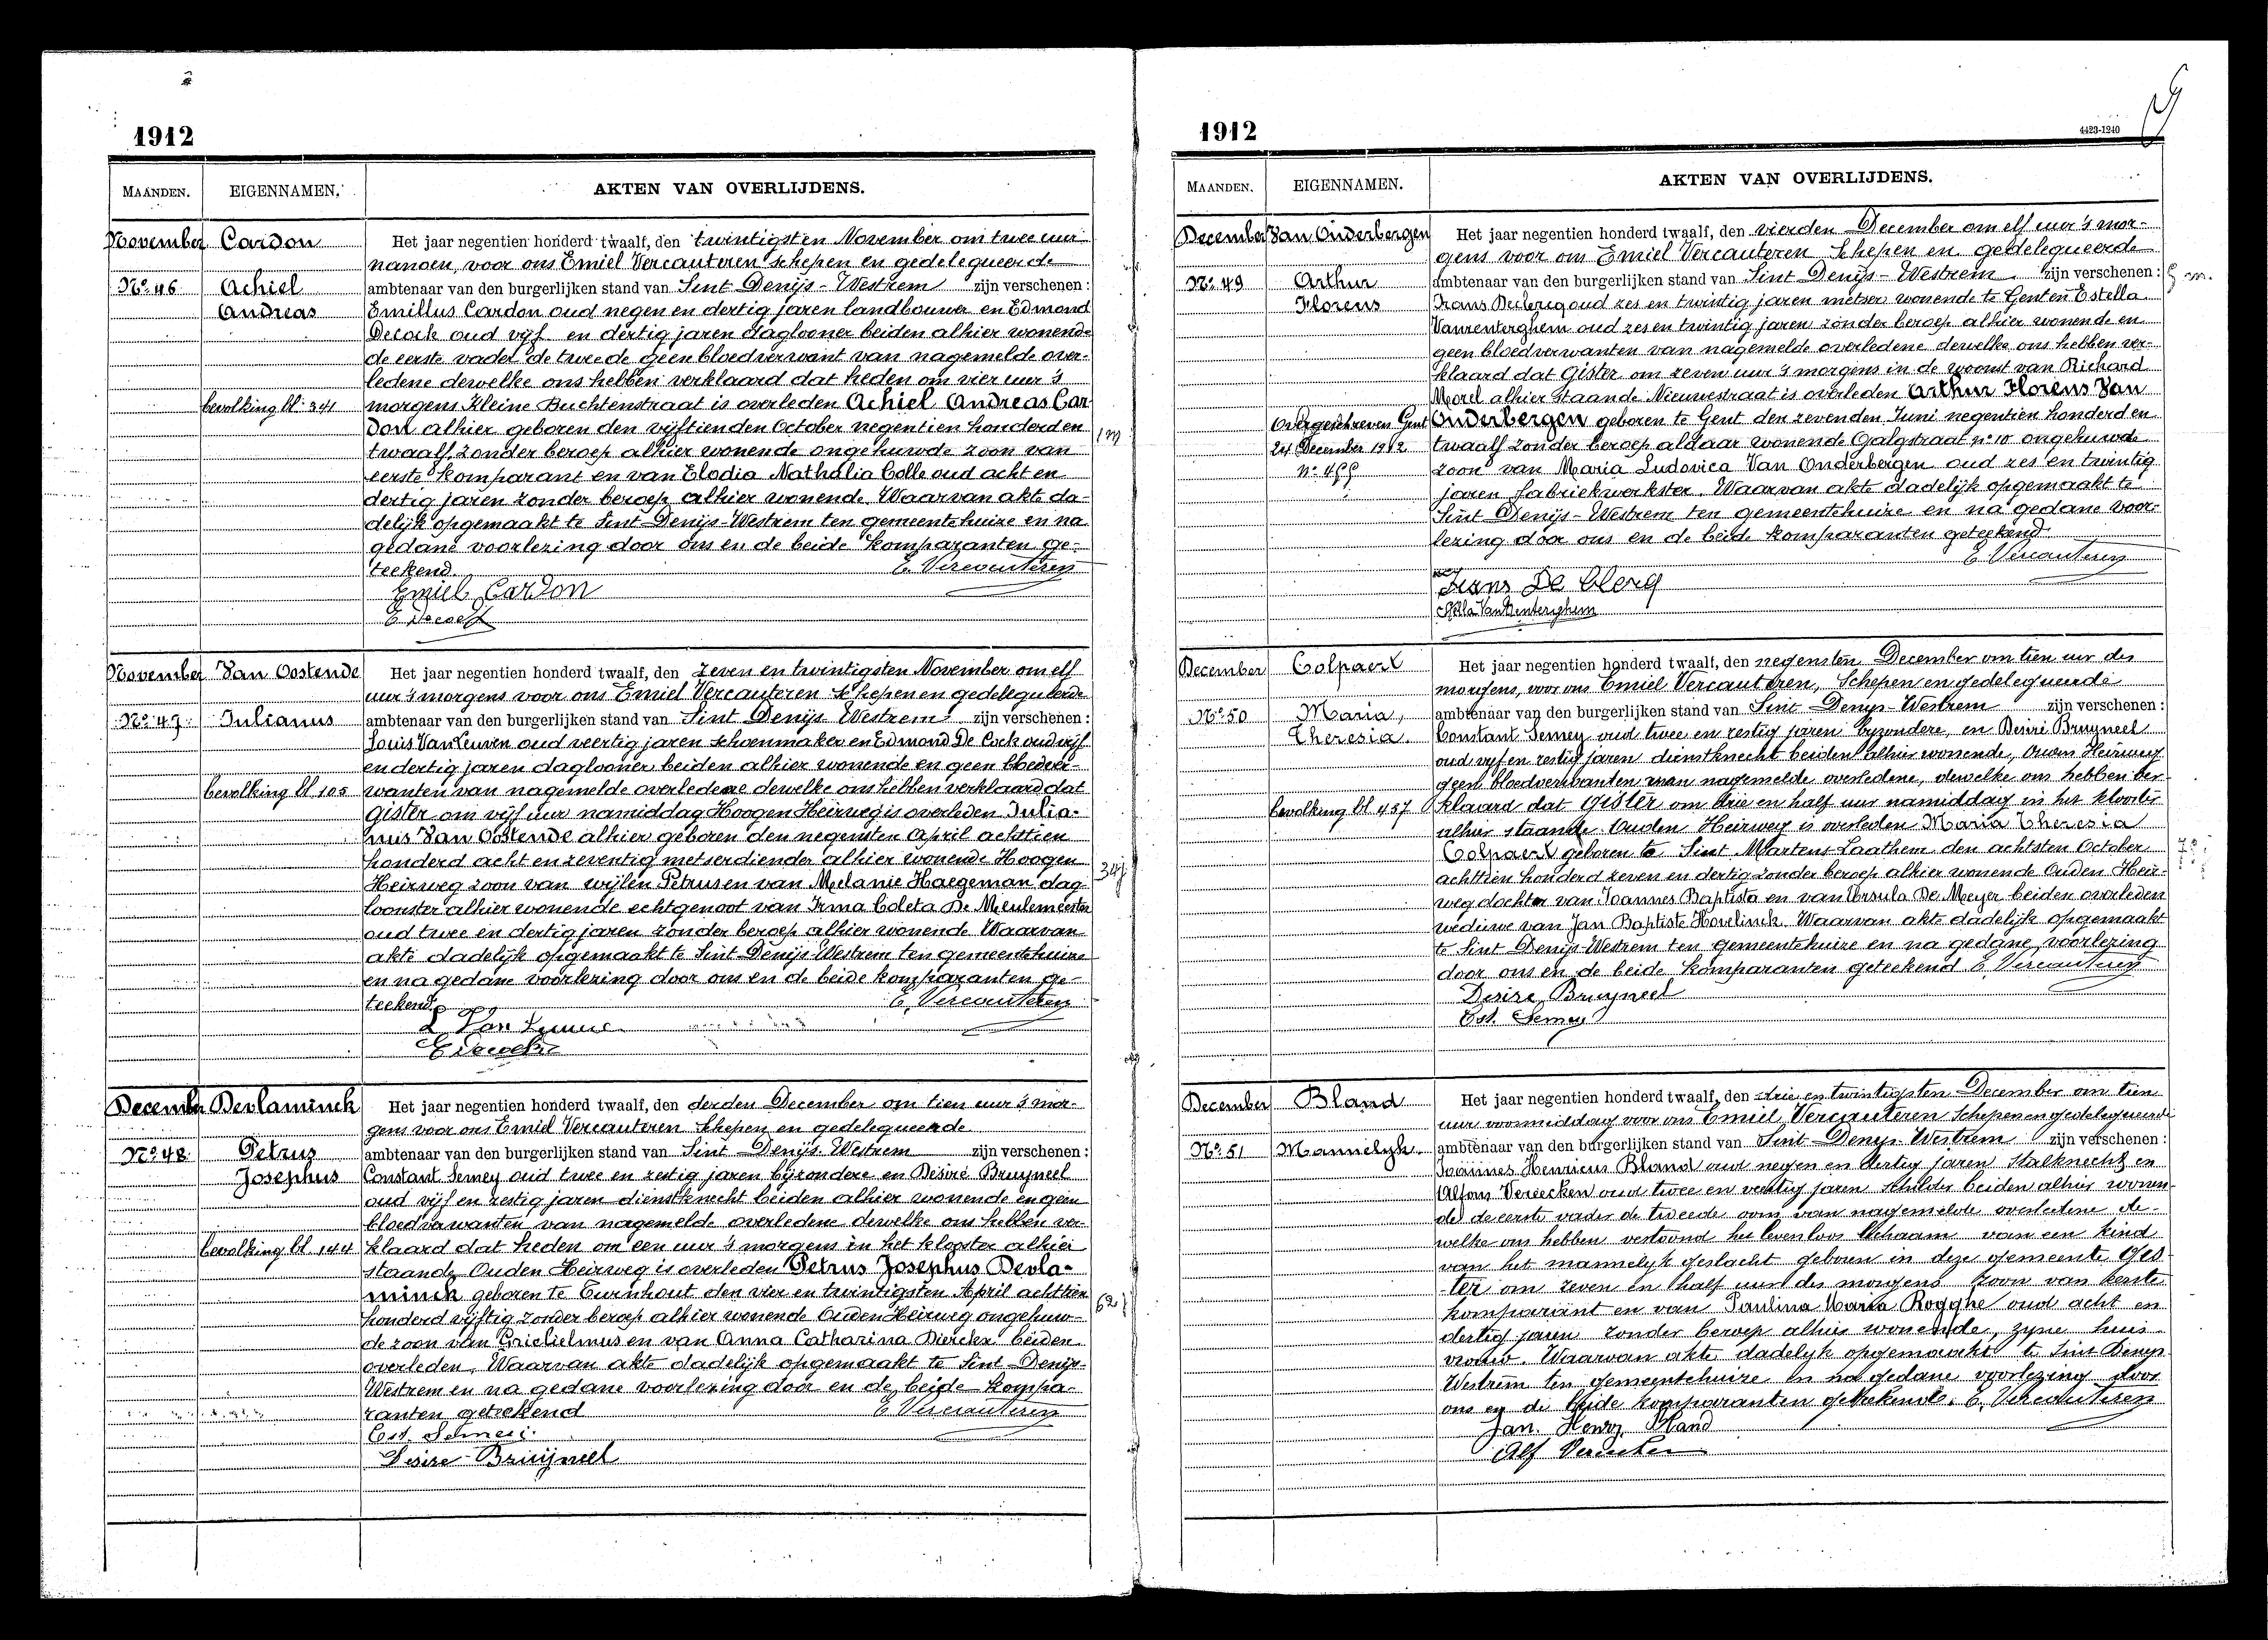 1912
MAANDEN. EIGENNAMEN. AKTEN VAN OVERLIJDENS.
November Cardon Het jaar negentien honderd twaalf, den twintigsten November om twee uur
nanoen, voor ons Emiel Vercauteren schepen en gedelegueerde
No. 46 Achiel ambtenaar van den burgerlijken stand van Sint Denijs-Westrem zijn verschenen:
Andreas Emillus Cardon oud negen en dertig jaren landbouwer en Edmond
Decock oud vijf en dertig jaren daglooner beiden alhier wonende
de eerste vader de tweede geen bloedverwant van nagemelde over-
ledene dewelke ons hebben verklaard dat heden om vier uur 's
bevolking bl. 341 morgens Kleine Buchtenstraat is overleden Achiel Andreas Car
don alhier geboren den vijftienden October negentien honderd en
twaalf, zonder beroep alhier wonende ongehuwde zoon van
eerste komparant en van Elodia Nathalia Colle oud acht en
dertig jaren zonder beroep alhier wonende. Waarvan akte da-
delijk opgemaakt te Sint-Denijs-Westrem ten gemeentehuize en na
gedane voorlezing door ons en de beide komparanten ge-
teekend. E. Vercauteren
Emiel Cardon
E Decock
1 m
November Van Oostende Het jaar negentien honderd twaalf, den zeven en twintigsten November om elf
uur 's morgens voor ons Emiel Vercauteren schepen en gedelegueerde
No. 47 Julianus ambtenaar van den burgerlijken stand van Sint Denijs Westrem zijn verschenen:
Louis Van Leuven oud veertig jaren schoenmaker en Edmond De Cock oud vijf
en dertig jaren daglooner beiden alhier wonende en geen bloedver-
bevolking bl 105 wanten van nagemelde overledene dewelke ons hebben verklaard dat
Gister om vijf uur namiddag Hoogen Heirweg is overleden Julia-
nus Van Oostende alhier geboren den negensten April achttien
honderd acht en zeventig metserdiender alhier wonende Hoogen
Heirweg zoon van wijlen Petrus en van Melanie Haegeman dag
loonster alhier wonende echtgenoot van Irma Coleta De Meulemeester
oud twee en dertig jaren zonder beroep alhier wonende Waarvan
akte dadelijk opgemaakt te Sint Denijs Westrem ten gemeentehuize
en na gedane voorlezing door ons en de beide komparanten ge-
teekend E. Vercauteren
L Van Leuven
E Decock
34j
December Devlaminck Het jaar negentien honderd twaalf, den derden December om tien uur 's mor-
gens voor ons Emiel Vercauteren schepen en gedelegueerde
No. 48 Petrus ambtenaar van den burgerlijken stand van Sint Denijs Westrem zijn verschenen:
Josephus Constant Semey oud twee en zestig jaren bijzondere en Désiré Bruyneel
oud vijf en zestig jaren dienstknecht beiden alhier wonende en geen
bloedverwanten van nagemelde overledene dewelke ons hebben ver-
bevolking bl 144 klaard dat heden om een uur 's morgens in het klooster alhier
staande Ouden Heirweg is overleden Petrus Josephus Devla-
minck geboren te Turnhout den vier en twintigsten April achttien
honderd vijftig zonder beroep alhier wonende Ouden Heirweg ongehuw-
de zoon van Guielielmus en van Anna Catharina Dierckx beiden
overleden. Waarvan akte dadelijk opgemaakt te Sint-Denijs-
Westrem en na gedane voorlezing door en de beide kompa-
ranten geteekend E Vercauteren
Cst. Semeij
Desire Bruyneel
62j
1912
4423-1240
MAANDEN. EIGENNAMEN. AKTEN VAN OVERLIJDENS.
December Van Onderbergen Het jaar negentien honderd twaalf, den vierden December om elf uur 's mor-
gens voor ons Emiel Vercauteren Schepen en gedelegueerde
No. 49 Arthur ambtenaar van den burgerlijken stand van Sint Denijs-Westrem zijn verschenen:
Florens Frans Declercq oud zes en twintig jaren metser wonende te Gent en Estella
Vanrenterghem oud zes en twintig jaren zonder beroep alhier wonende en
geen bloedverwanten van nagemelde overledene dewelke ons hebben ver-
klaard dat Gister om zeven uur 's morgens in de woonst van Richard
Morel alhier staande Nieuwstraat is overleden Arthur Florens Van
Overgeschreven Gent Onderbergen geboren te Gent den zevenden Juni negentien honderd en
24 December 1912 twaalf zonder beroep aldaar wonende Galgstraat no. 10 ongehuwde
zoon van Maria Ludovica Van Onderbergen oud zes en twintig
jaren fabriekwerkster. Waarvan akte dadelijk opgemaakt te
Sint Denijs-Westrem ten gemeentehuize en na gedane voor-
lezing door ons en de beide komparanten geteekend
E. Vercauteren
Frans De Clercq
Stella Van Renterghem
December Colpaert Het jaar negentien honderd twaalf, den negensten December om tien uur des
morgens, voor ons Emiel Vercauteren, Schepen en gedelegueerde
No. 50 Maria, ambtenaar van den burgerlijken stand van Sint Denys-Westrem zijn verschenen:
Theresia. Constant Semey oud twee en zestig jaren byzondere, en Desiré Bruyneel
oud vyf en zestig jaren dienstknecht beiden alhier wonende, Ouden Heirweg
geen bloedverwanten van nagemelde overledene, dewelke ons hebben ver-
bevolking bl 457 klaard dat Gister om drie en half uur namiddag in het klooster
alhier staande Ouden Heirweg is overleden Maria Theresia
Colpaert geboren te Sint Martens Laathem den achtsten October
achttien honderd zeven en dertig zonder beroep alhier wonende Ouden Heir-
weg dochter van Joannes Baptista en van Ursula De Meyer beiden overleden
weduwe van Jan Baptiste Hovelinck. Waarvan akte dadelijk opgemaakt
te Sint Denijs-Westrem ten gemeentehuize en na gedane voorlezing
door ons en de beide komparanten geteekend E. Vercauteren
Desire Bruyneel
Cst. Semey
December Bland Het jaar negentien honderd twaalf, den drie en twintigsten December om tien
uur voormiddag voor ons Emiel Vercauteren Schepen en gedelegueerde
No. 51 Mannelyk. ambtenaar van den burgerlijken stand van Sint Denys-Westrem zijn verschenen:
Joannes Henricus Bland oud negen en dertig jaren Stalknecht en
Alfons Vereecken oud twee en veertig jaren schilder beiden alhier wonen-
de de eerste vader de tweede oom van nagemelde overledene de-
welke ons hebben vertoond het levenloos lichaam van een kind
van het mannelyk geslacht geboren in deze gemeente Gis-
ter om zeven en half uur des morgens zoon van eerste
komparant en van Paulina Maria Rogghe oud acht en
dertig jaren zonder beroep alhier wonende, zyne huis-
vrouw. Waarvan akte dadelyk opgemaakt te Sint Denys
Westrem ten gemeentehuize en na gedane voorlezing door
ons en de beide komparanten geteekend. E. Vercauteren
Jan Henry Bland
Alf Vereecken